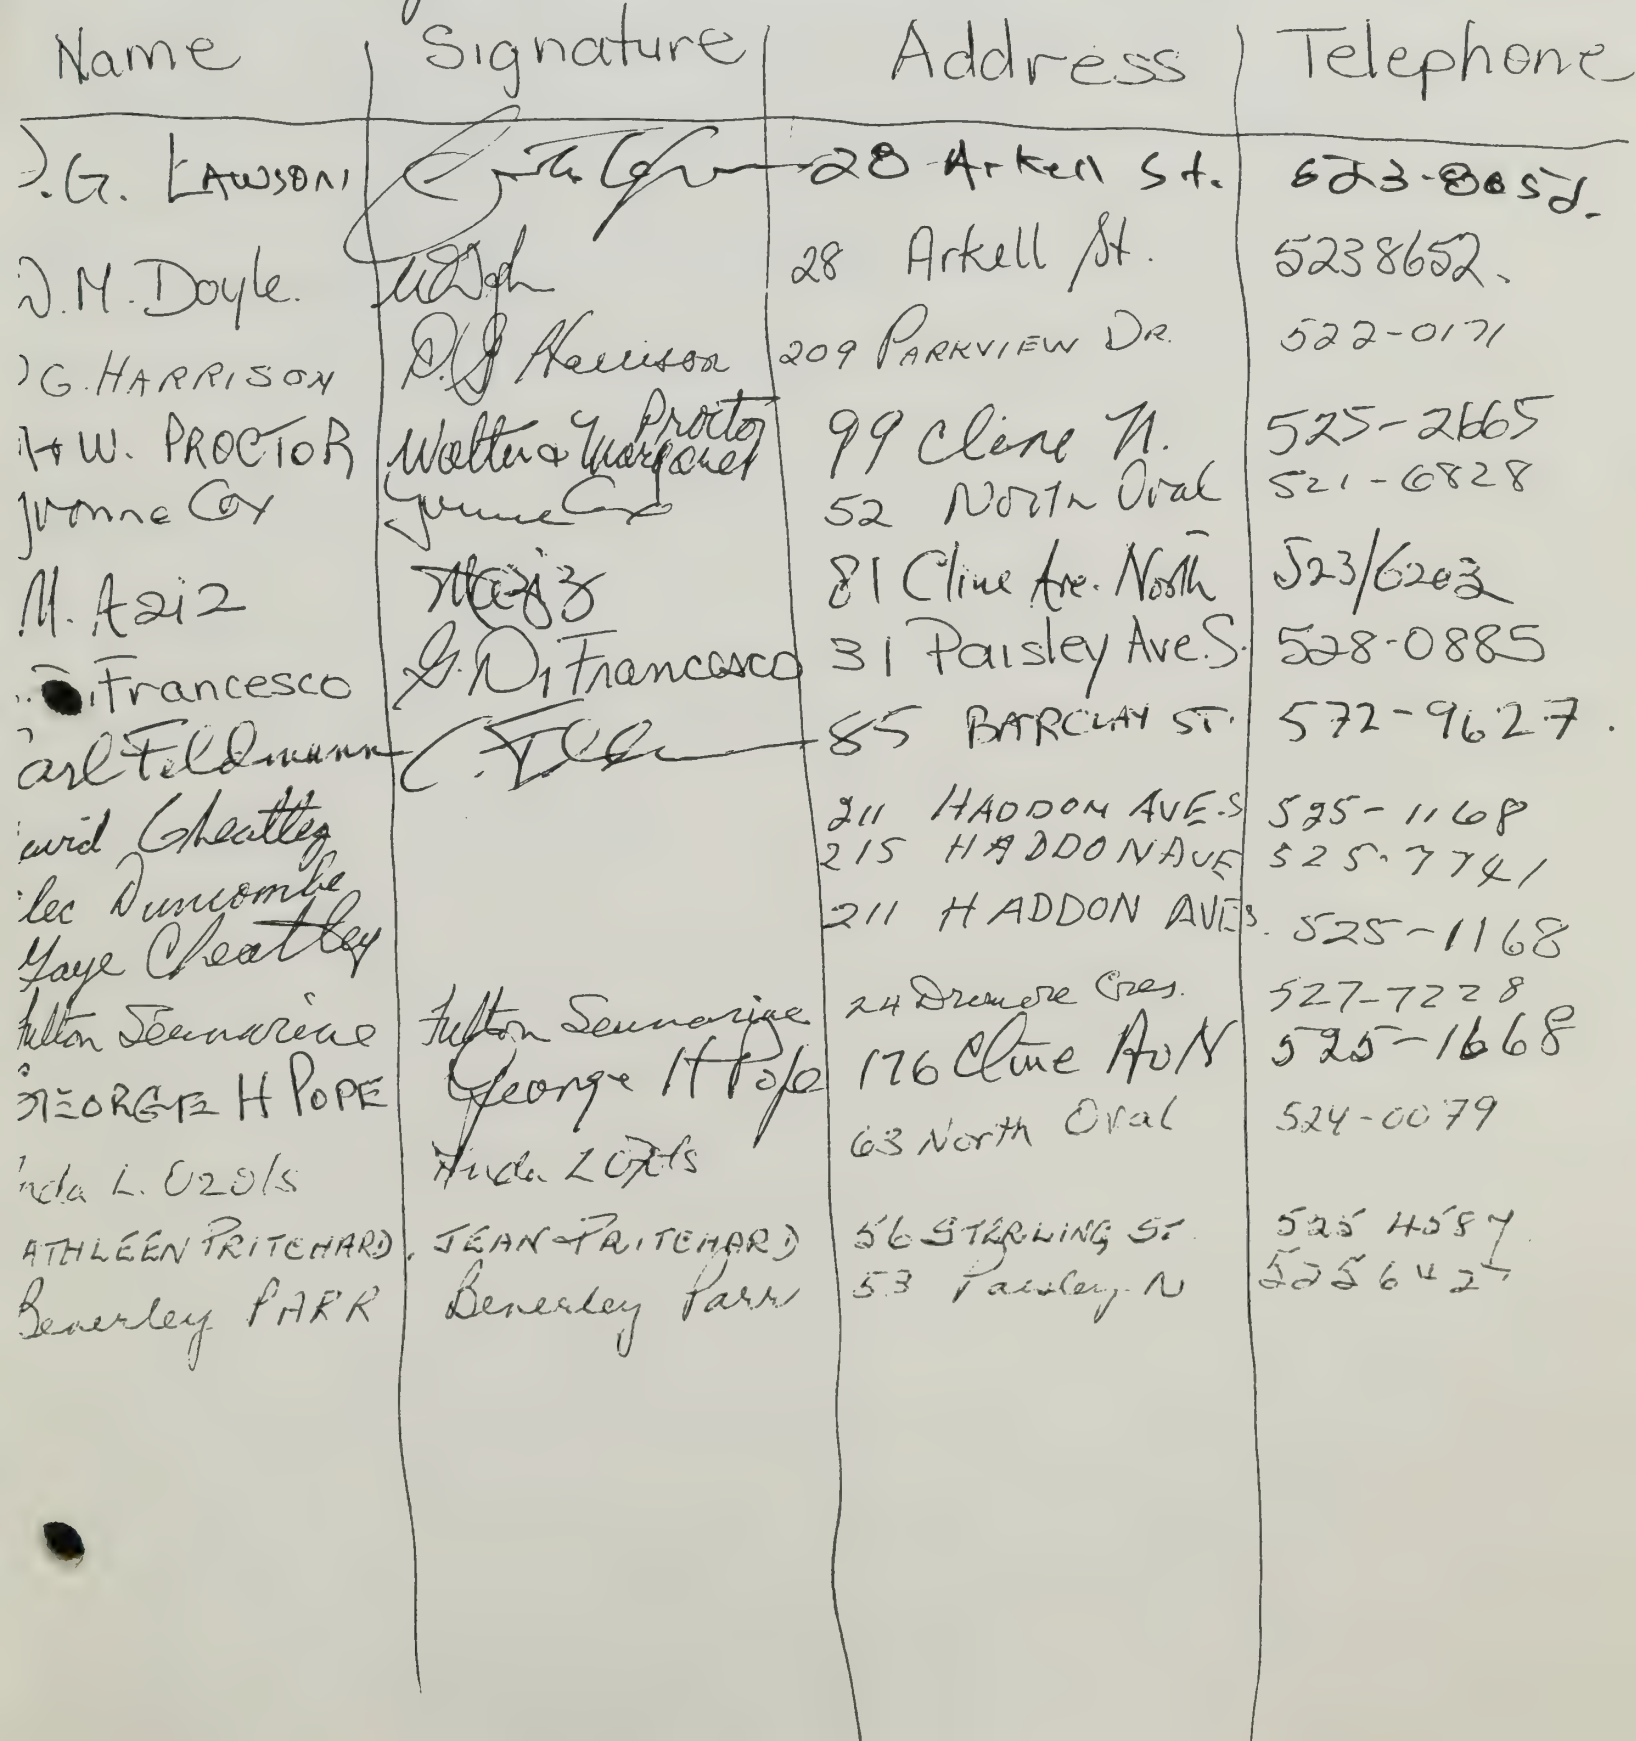 Name Signature Address Telephone
.G. LAWSON 28 Arkell St. 523-8652.
D.M. Doyle. 28 Arkell St. 5238652.
G. HARRISON D.G Harrison 209 PARKVIEW DR. 522-0171
W. PROCTOR Walter & Margaret Proctor 99 Cline N. 525-2665
Yvonne Cox Yvonne Cox 52 North Oval 521-6828
M. Aziz MAziz 81 Cline Ave. North 523/6202
Francesco G. Di Francesco 31 Paisley Ave. S. 528-0885
arl Feldmann C. 85 BARCLAY ST. 572-9627.
avid Cheatley 211 HADDON AVE.S 525-1168
lec Duncombe 215 HADDON AVE 525-7741
Faye Cheatley 211 HADDON AVE S. 525-1168
Fulton Seunarine Fulton Seunarine 24 Cres. 527-7228
GEORGE H POPE George H Pope 176 Cline Av N 525-1668
nda L. Ozols L Ozols 63 North Oval 524-0079
ATHLEEN PRITCHARD. JEAN PRITCHARD 56 STERLING ST. 525 4587
Beverley PARR Beverley Parr 53 Paisley N 525 6425